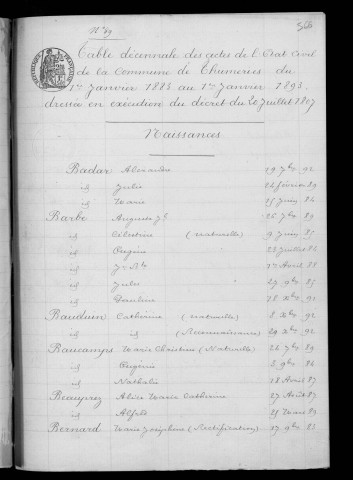 N° 49
566
Table décennale des actes de l'Etat Civil
de la Commune de Thumeries du
1er Janvier 1883 au 1er Janvier 1893,
dressée en exécution du décret du 20 Juillet 1807
Naissances
Badar Alexandre 19 7bre 92
id Julie 24 février 89
id Marie 25 Juin 84
Barbe Auguste Jh 26 7bre 89
id Célestine (naturelle) 9 Juin 85
id Eugène 28 Juillet 84
id Jn Bte Avril 88
id Jules 27 9bre 85
id Pauline 18 Xbre 92
Bauduin Catherine (naturelle) 8 Xbre 92
id id (Reconnaissance) 29 Xbre 92
Baucamps Marie Christine (Naturelle) 24 7bre 89
id Eugénie 8 9bre 86
id Nathalie 18 Avril 87
Beauprez Alice Marie Catherine 27 Août 87
id Alfred 25 Mars 89
Bernard Marie Josephine (Rectification) 17 9bre 83